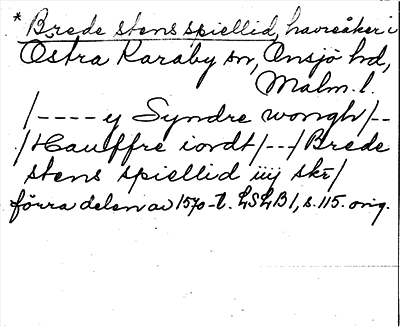 * Brede stens spiellid, havreåker i
Östra Karaby sn, Onsjö hd,
Malm. l.
/---- y Syndre wongh/--
/Hauffre iordt/--/Brede
stens spiellid iiij skr/
förra delen av 1570-t. LSLB 1, s. 115. orig.